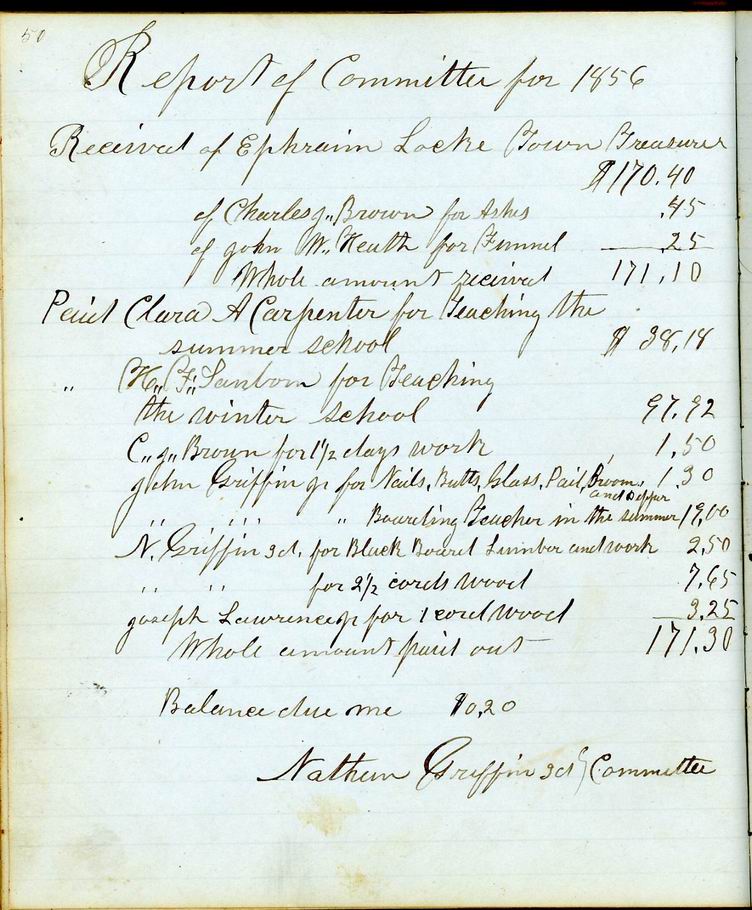 50
Report of Committee for 1856
Receivd of Ephraim Locke Town Treasurer
$170.40
of Charles g,, Brown for Ashes .45
of john W. Heath for Funnel 25
Whole amount receivd 171,10
Paid Clara A Carpenter for Teaching the
summer school $ 38,18
,, H,, F,, Sanborn for Teaching
the winter school 97.92
C,, g,, Brown for 1 1/2 days work 1,50
john Griffin jr for Nails, Butts, Glass, Pail, Broom, 1.30
and Dipper
,, ,,, ,, Boarding Teacher in the summer 19,00
N. Griffin 3d. for Black Board Lumber and work 2,50
,, ,, for 2 1/2 cords wood 7,65
joseph Lawrence jr for 1 cord wood 3,25
Whole amount paid out 171.30
Balance due me $0,20
Nathan Griffin 3d} Committee